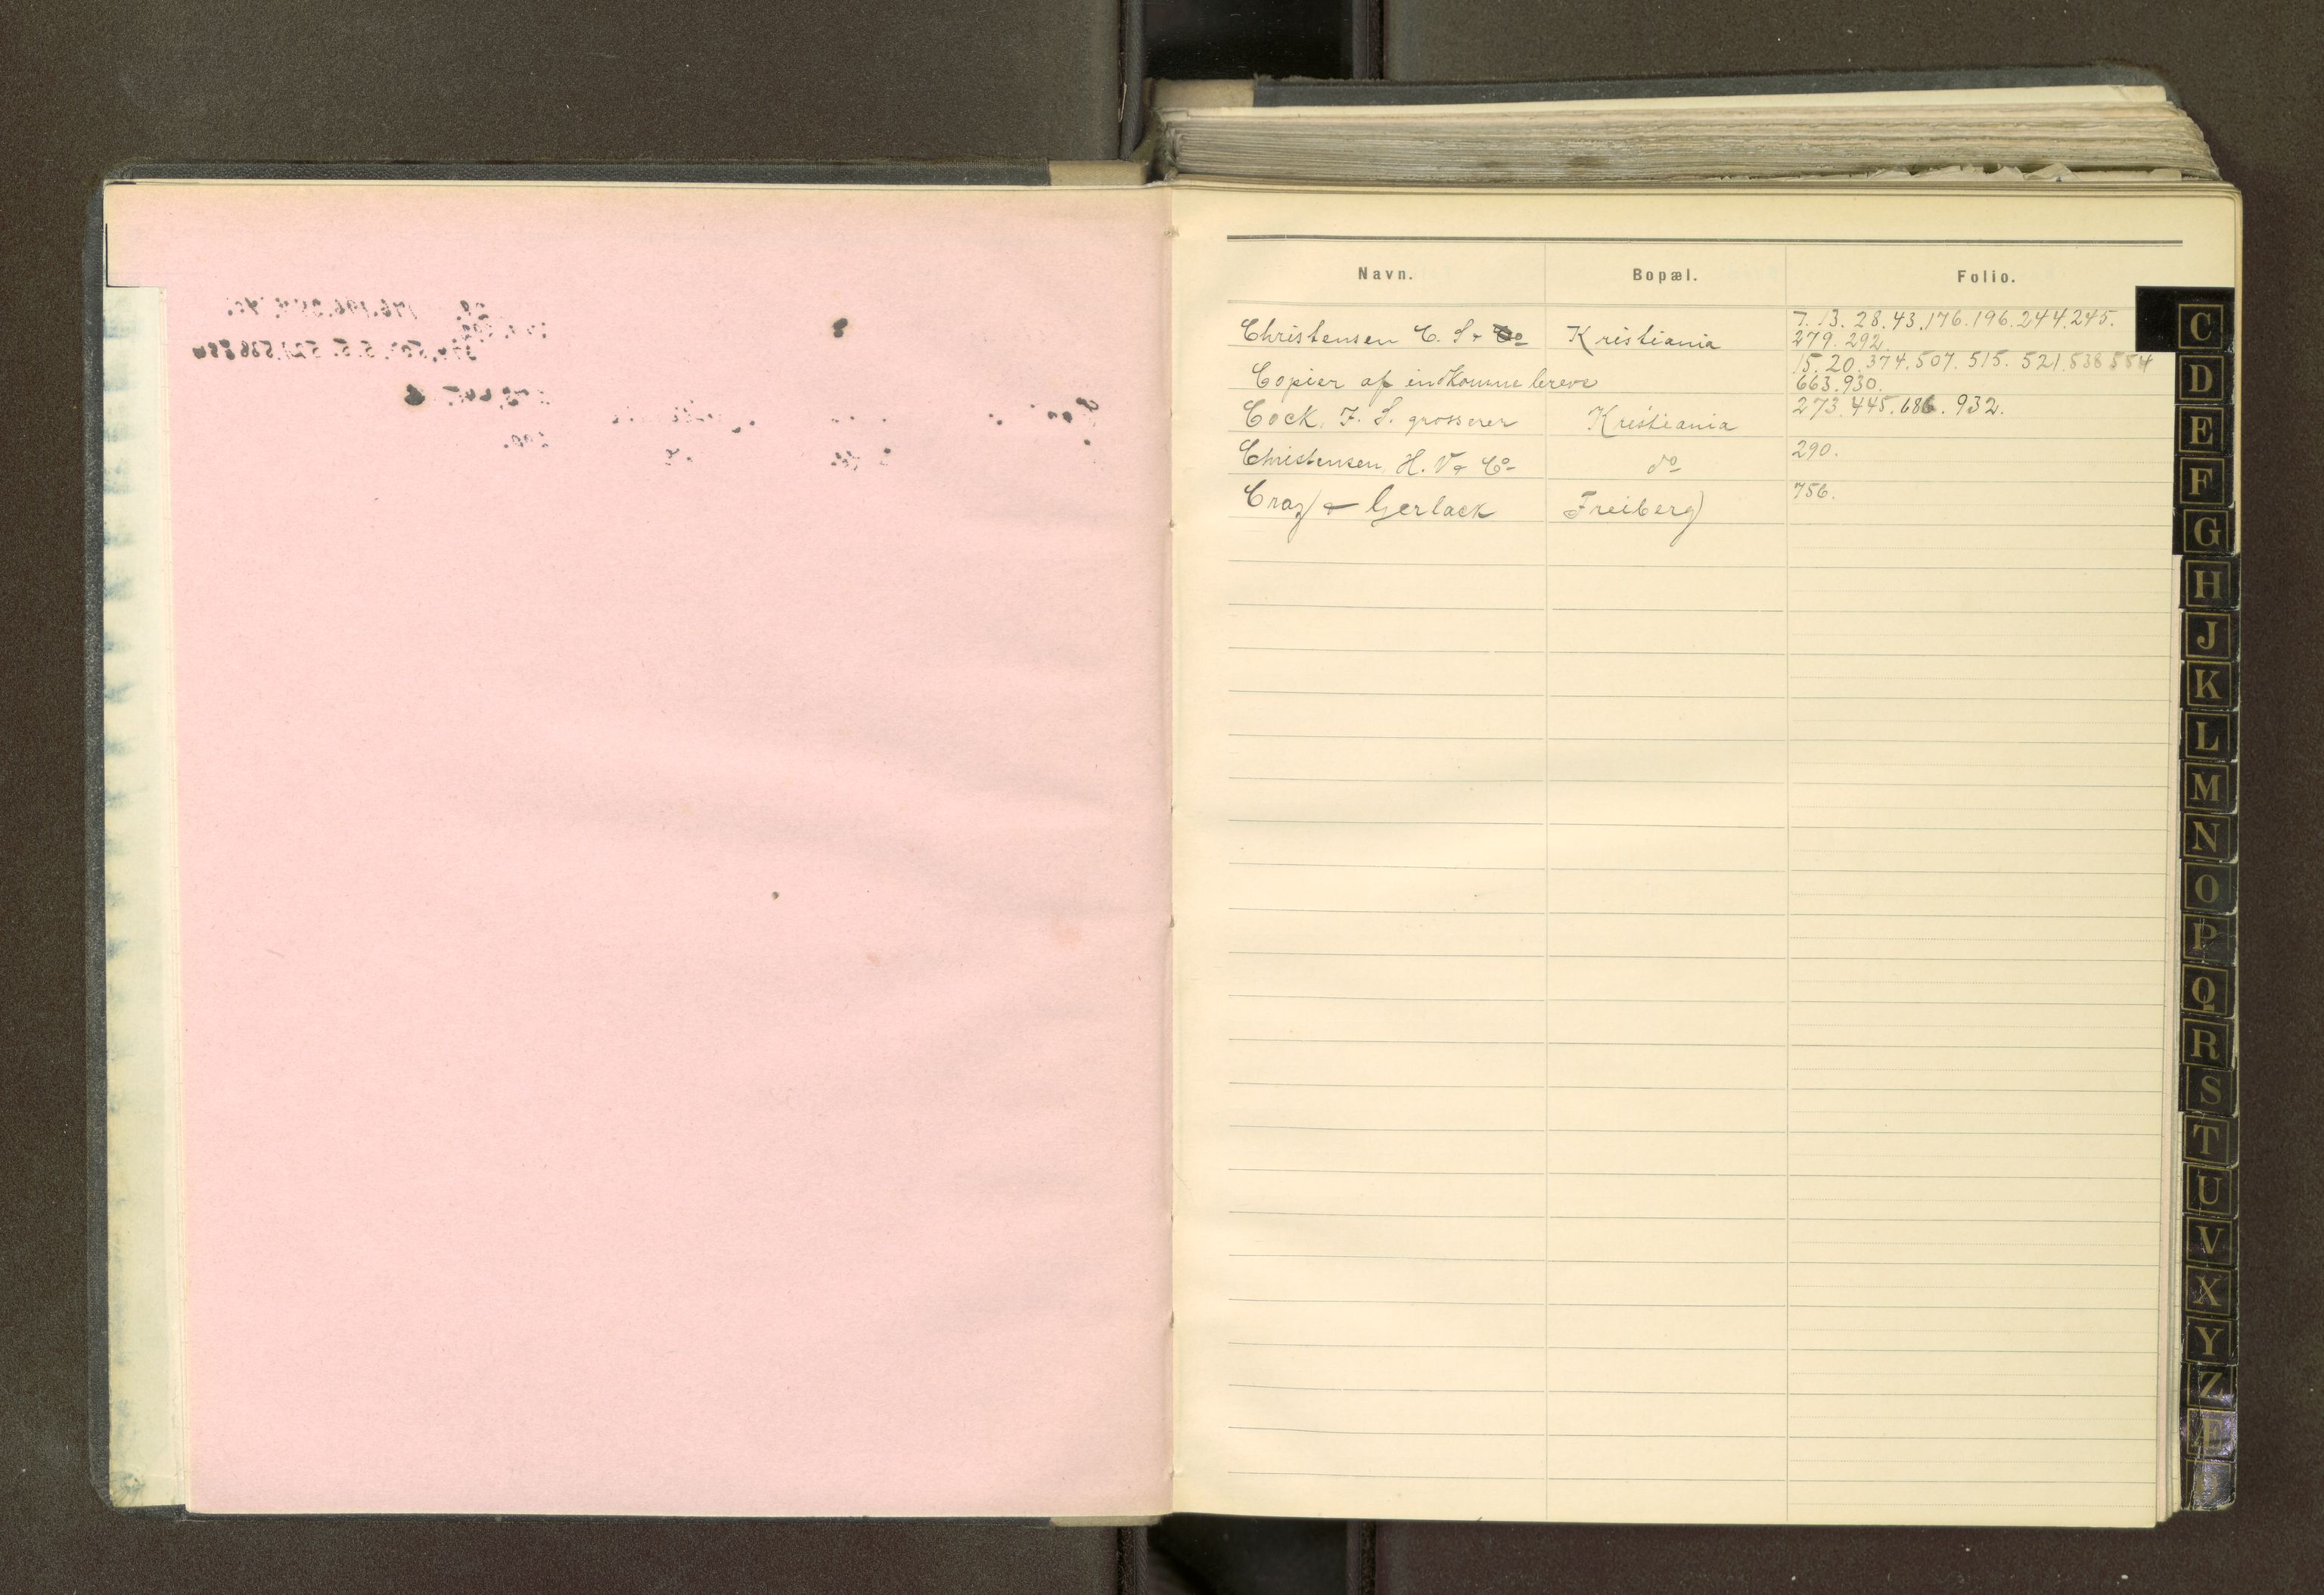 Navn. Bopæl. Folio.
7. 13. 28. 43. 176. 196. 244. 245.
Christensen C. S. & Co Kristiania 279. 292.
15. 20. 374. 507. 515. 521. 538 554
Copier af indkomne breve 663. 930.
Cock, F. S. grosserer Kristiania 273. 445. 686. 932.
Christensen, H. V & Co do 290.
Craz & Gerlack Freiberg 756.
C
D
E
F
G
H
J
K
L
M
N
O
P
Q
R
S
T
U
V
X
Y
Z
Æ